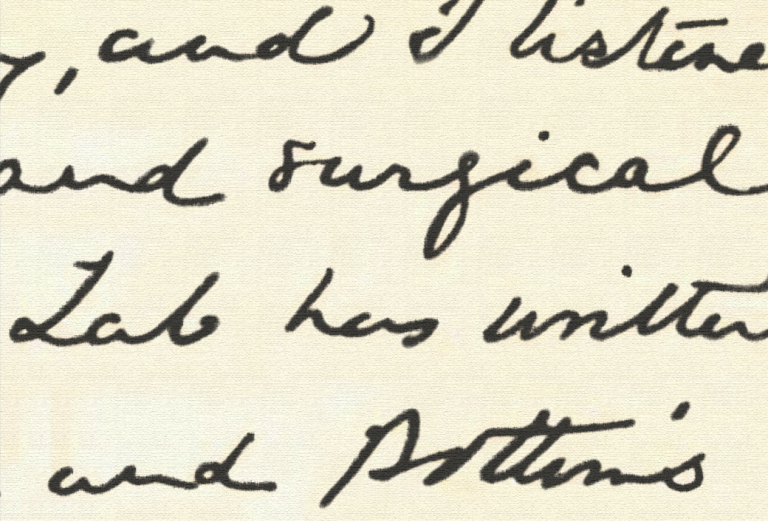 , and I listene
and surgical
Lab has written
and Bottini's